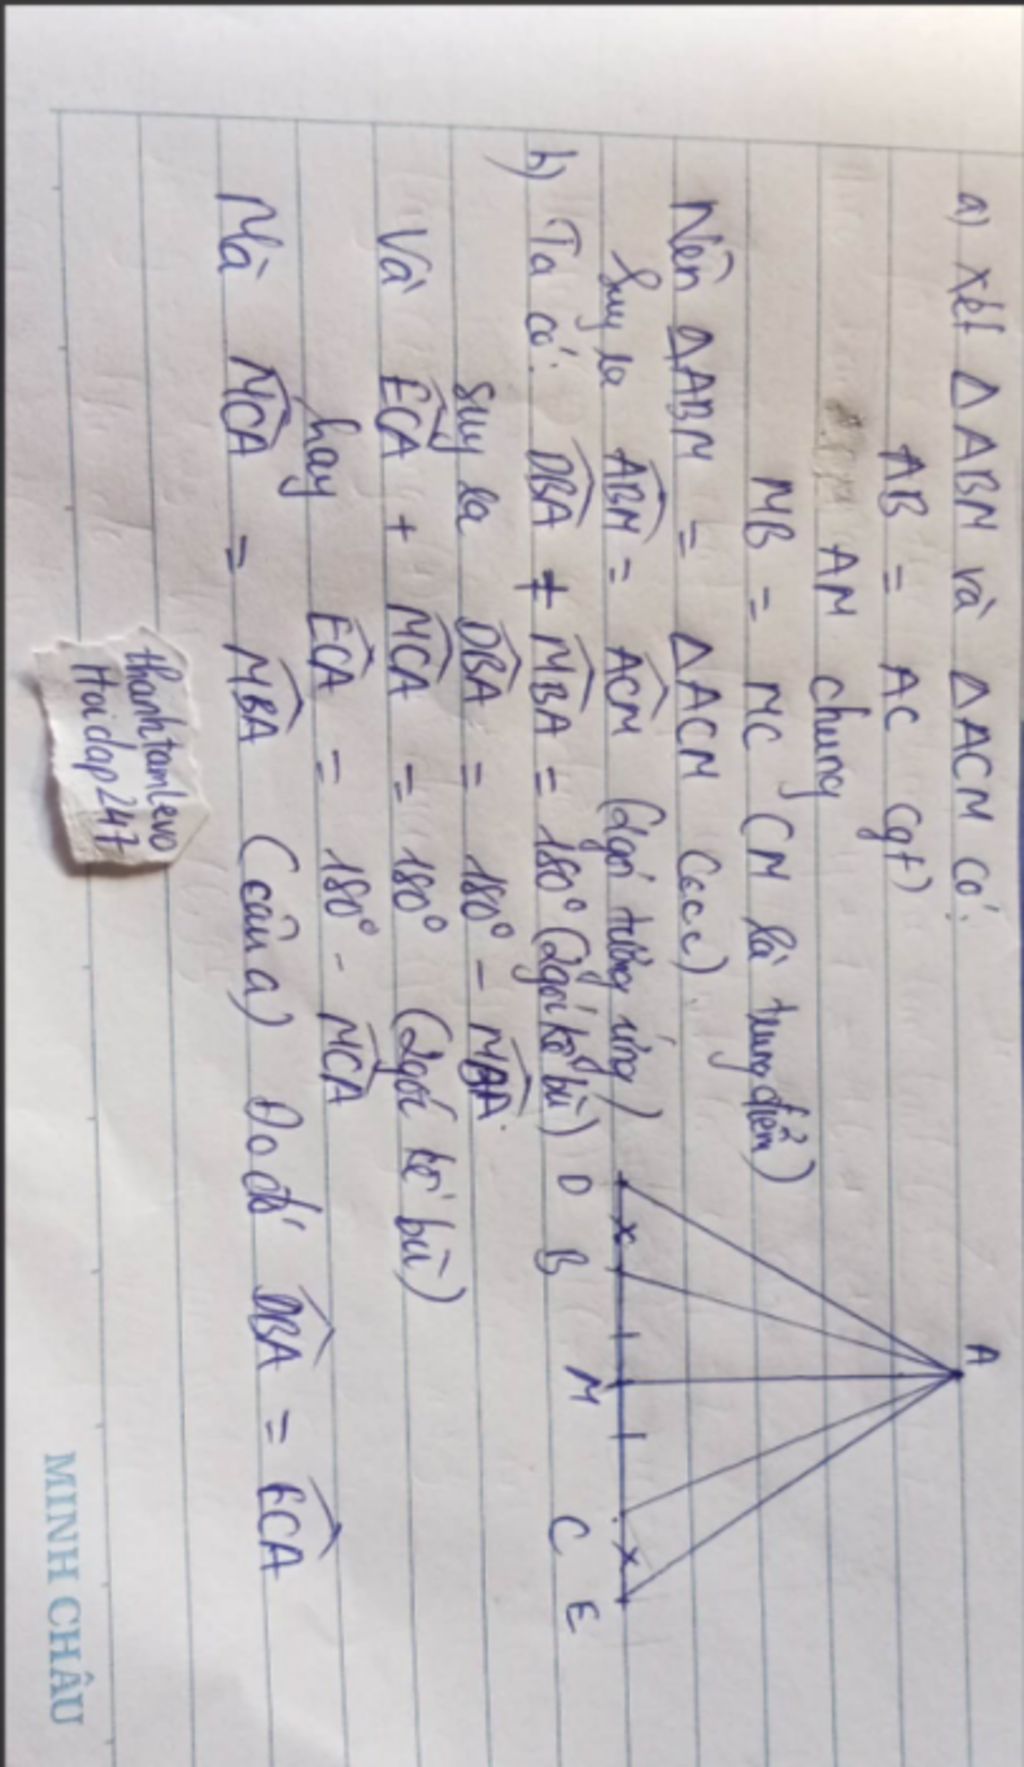 a) Xét ΔABM và ΔACM có:
AB = AC (gt)
AM chung
MB = MC (M là trung điểm)
Nên ΔABM = ΔACM (c.c.c)
Suy ra ABM̂ = ACM̂ (2 góc tương ứng)
b) Ta có: DBÂ + MBÂ = 180° (2 góc kề bù)
suy ra DBÂ = 180° - MBÂ
Và ECÂ + MCÂ = 180° (2 góc kề bù)
hay ECÂ = 180° - MCÂ
Mà MCÂ = MBÂ (câu a) Do đó DBÂ = ECÂ
A
D B M C E
thanhtamlevo
Hoidap247
MINH CHÂU